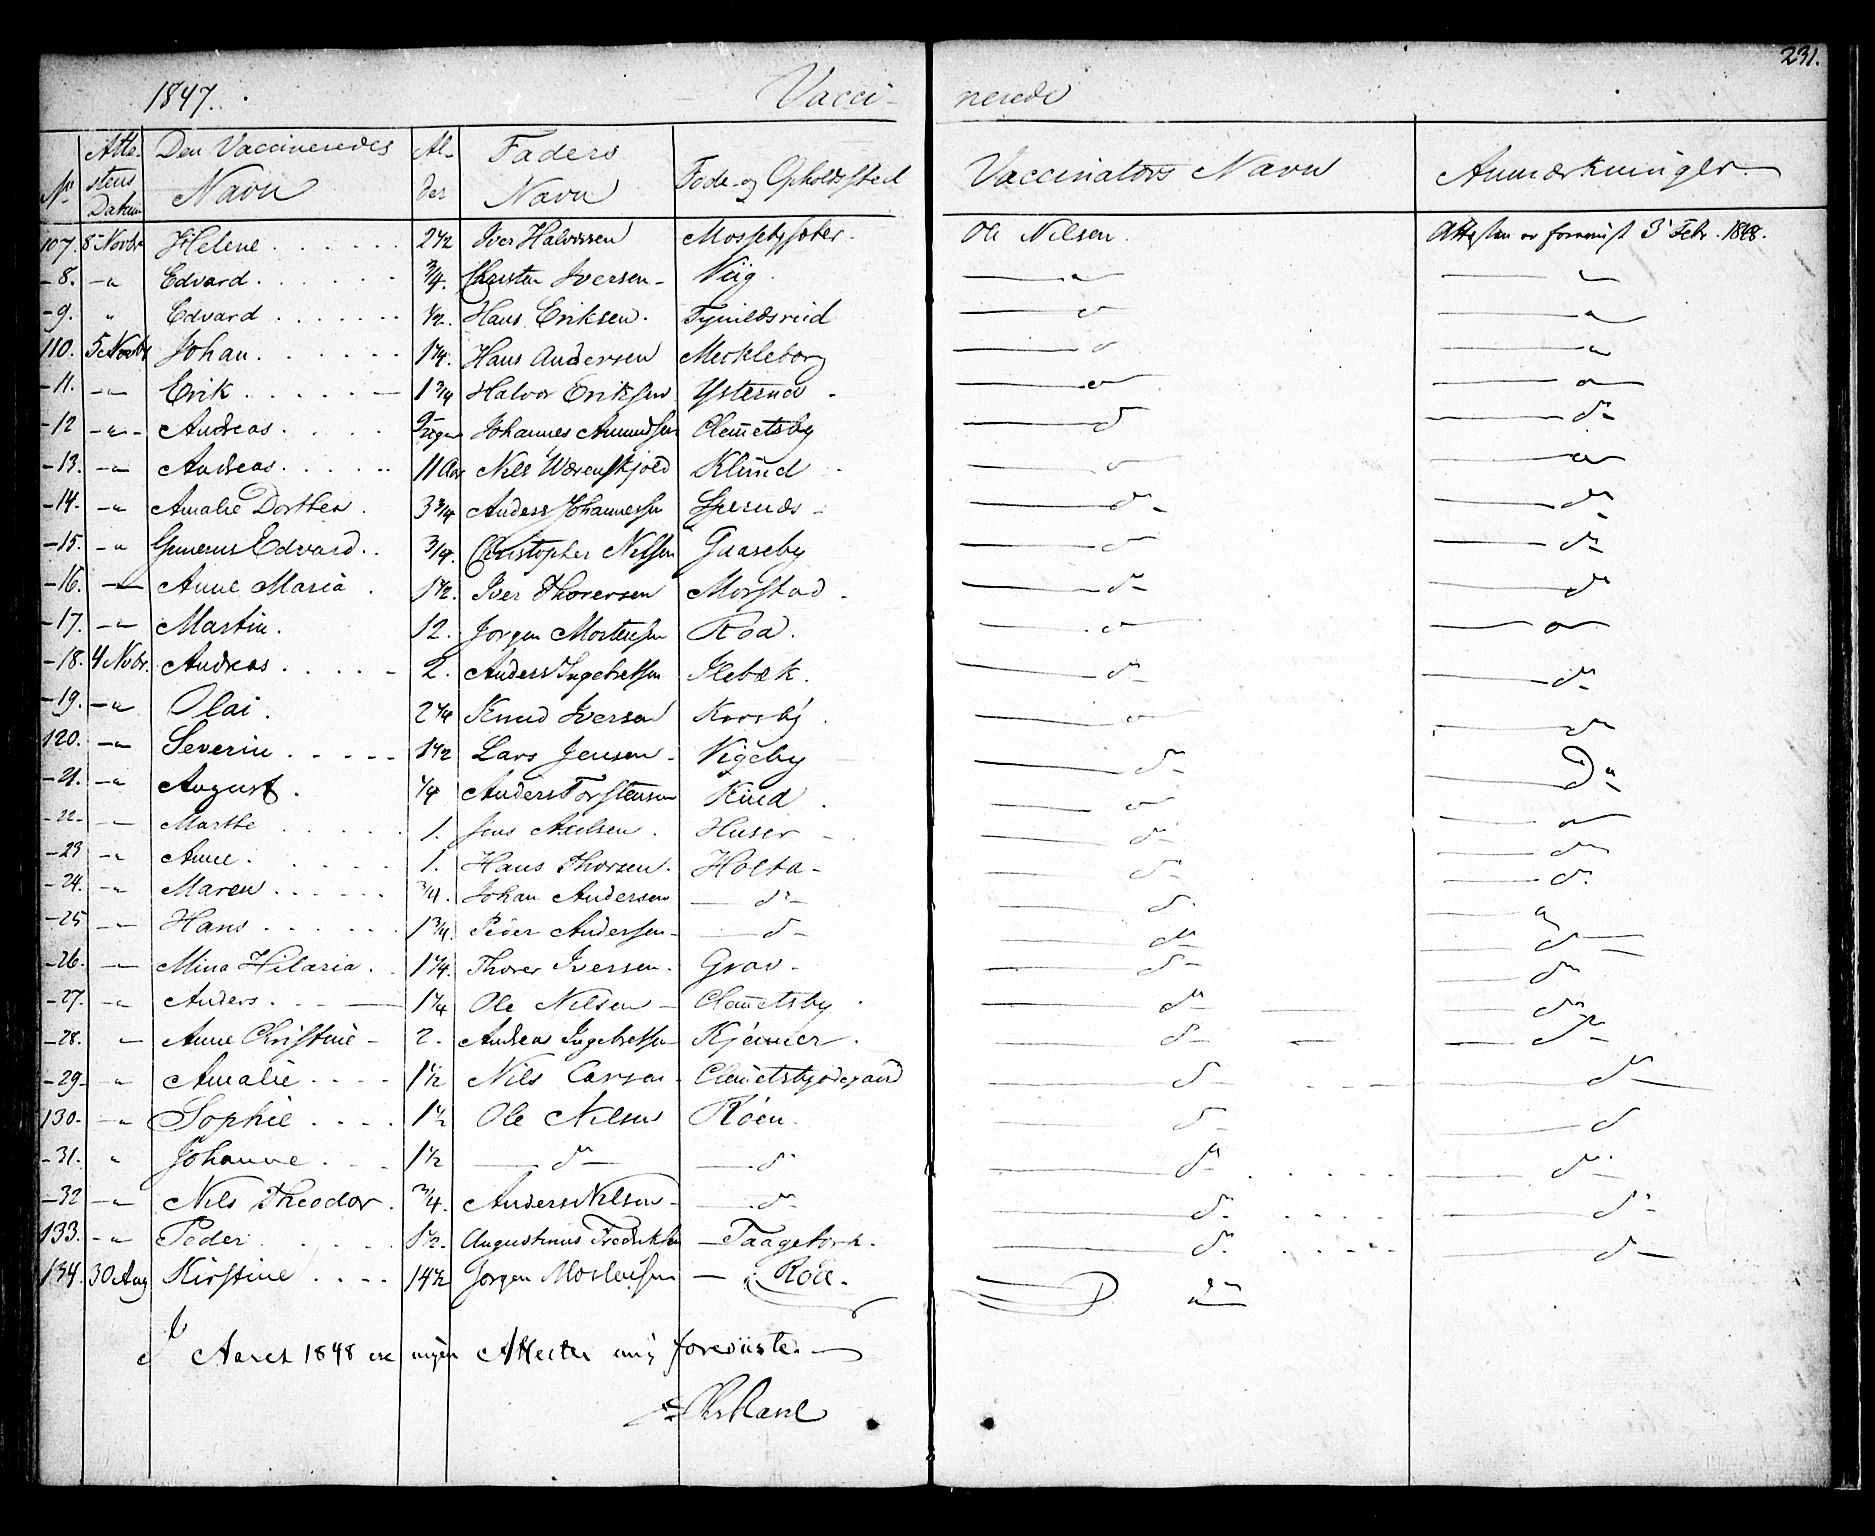 231.
1847. Vaccinerede
No Attestens Datum Den Vaccineredes Navn Alder Faders Navn Føde- og Opholdssted Vaccinatørs Navn Anmærkninger
107. 8 Novbr Helene 2 1/2 Iver Halvorsen Ole Nilsen. Attesten er forevist 3 Febr. 1848.
-8. -"- Edvard 3/4. Christen Iversen Viig -"- -"-
-9. " Edvard 1/2. Hans Eriksen. -"- -"-
110. 5 Novbr Johan. 1 1/4. Hans Andersen Mechleborg -"- -"-
-11. -"- Erik 1 3/4 Halvor Eriksen Ysternes -"- -"-
-12 -"- Andreas. Johannes Amundsen Clemetsby d d°
-13. -"- Andreas. 11 Aar Nils Værenskjold Klund -"- -"-
-14. -"- Amalie Dorthea. 3 3/4 Anders Johannessen Spernes d° d°
-15. -"- Gunerus Edvard. 3/4. Christopher Nilsen Gaaseby -"- d°
-16. -"- Anne Maria. 1 1/2. Iver Thoresen Morstad d° d°
-17. -"- Martin. 12. Jørgen Mortensen Roa. -"- -"-
-18. 4 Novbr. Andreas 2. Anders Ingebretsen Ilebæk. d° d°
-19. -"- Olai. 2 1/4 Knud Iversen Korsby -"- d°
120. -"- Severin 1 1/2 Lars Jensen Vigeby d° D°
-21. -"- August. 1/4 Anders Torstensen Kind -"-
-22- -"- Marthe 1. Jens Nielsen. Huser d° -"-
-23 -"- Anne. 1. Hans Thorsen. Holta d° d°
-24. -"- Maren 3/4. Johan Andersen d° d° d°
-25 -"- Hans 1 3/4. Peder Andersen d° d° -"-
-26. -"- Mina Hilaria. 1 1/4. Thorer Iversen. Grav d° d°
-27. -"- Anders. 1 1/4 Ole Nilsen Clemetsby d° d°
-28. " Anne Christine 2. Andreas Ingebretsen Kjenner d° d°
-29- " Amalie 1 1/2 Nils Larsen Clemetsbyødegaard d° d°
130. -"- Sophie 1 1/2 Ole Nilsen Roen d° d
-31. " Johanne. 1 1/2 d° d° d° d°
-32 -"- Nils Theodor. 3/4. Anders Nilsen d° d° d°
133. -"- Peder 1 1/2. Augustinus Fredriksen Taagetorp. d° d°
134. 30 Aug Kirstine 14 1/2 Jørgen Mortensen Roa. d°
I Aaret 1848 ere ingen Attester mig foreviiste.